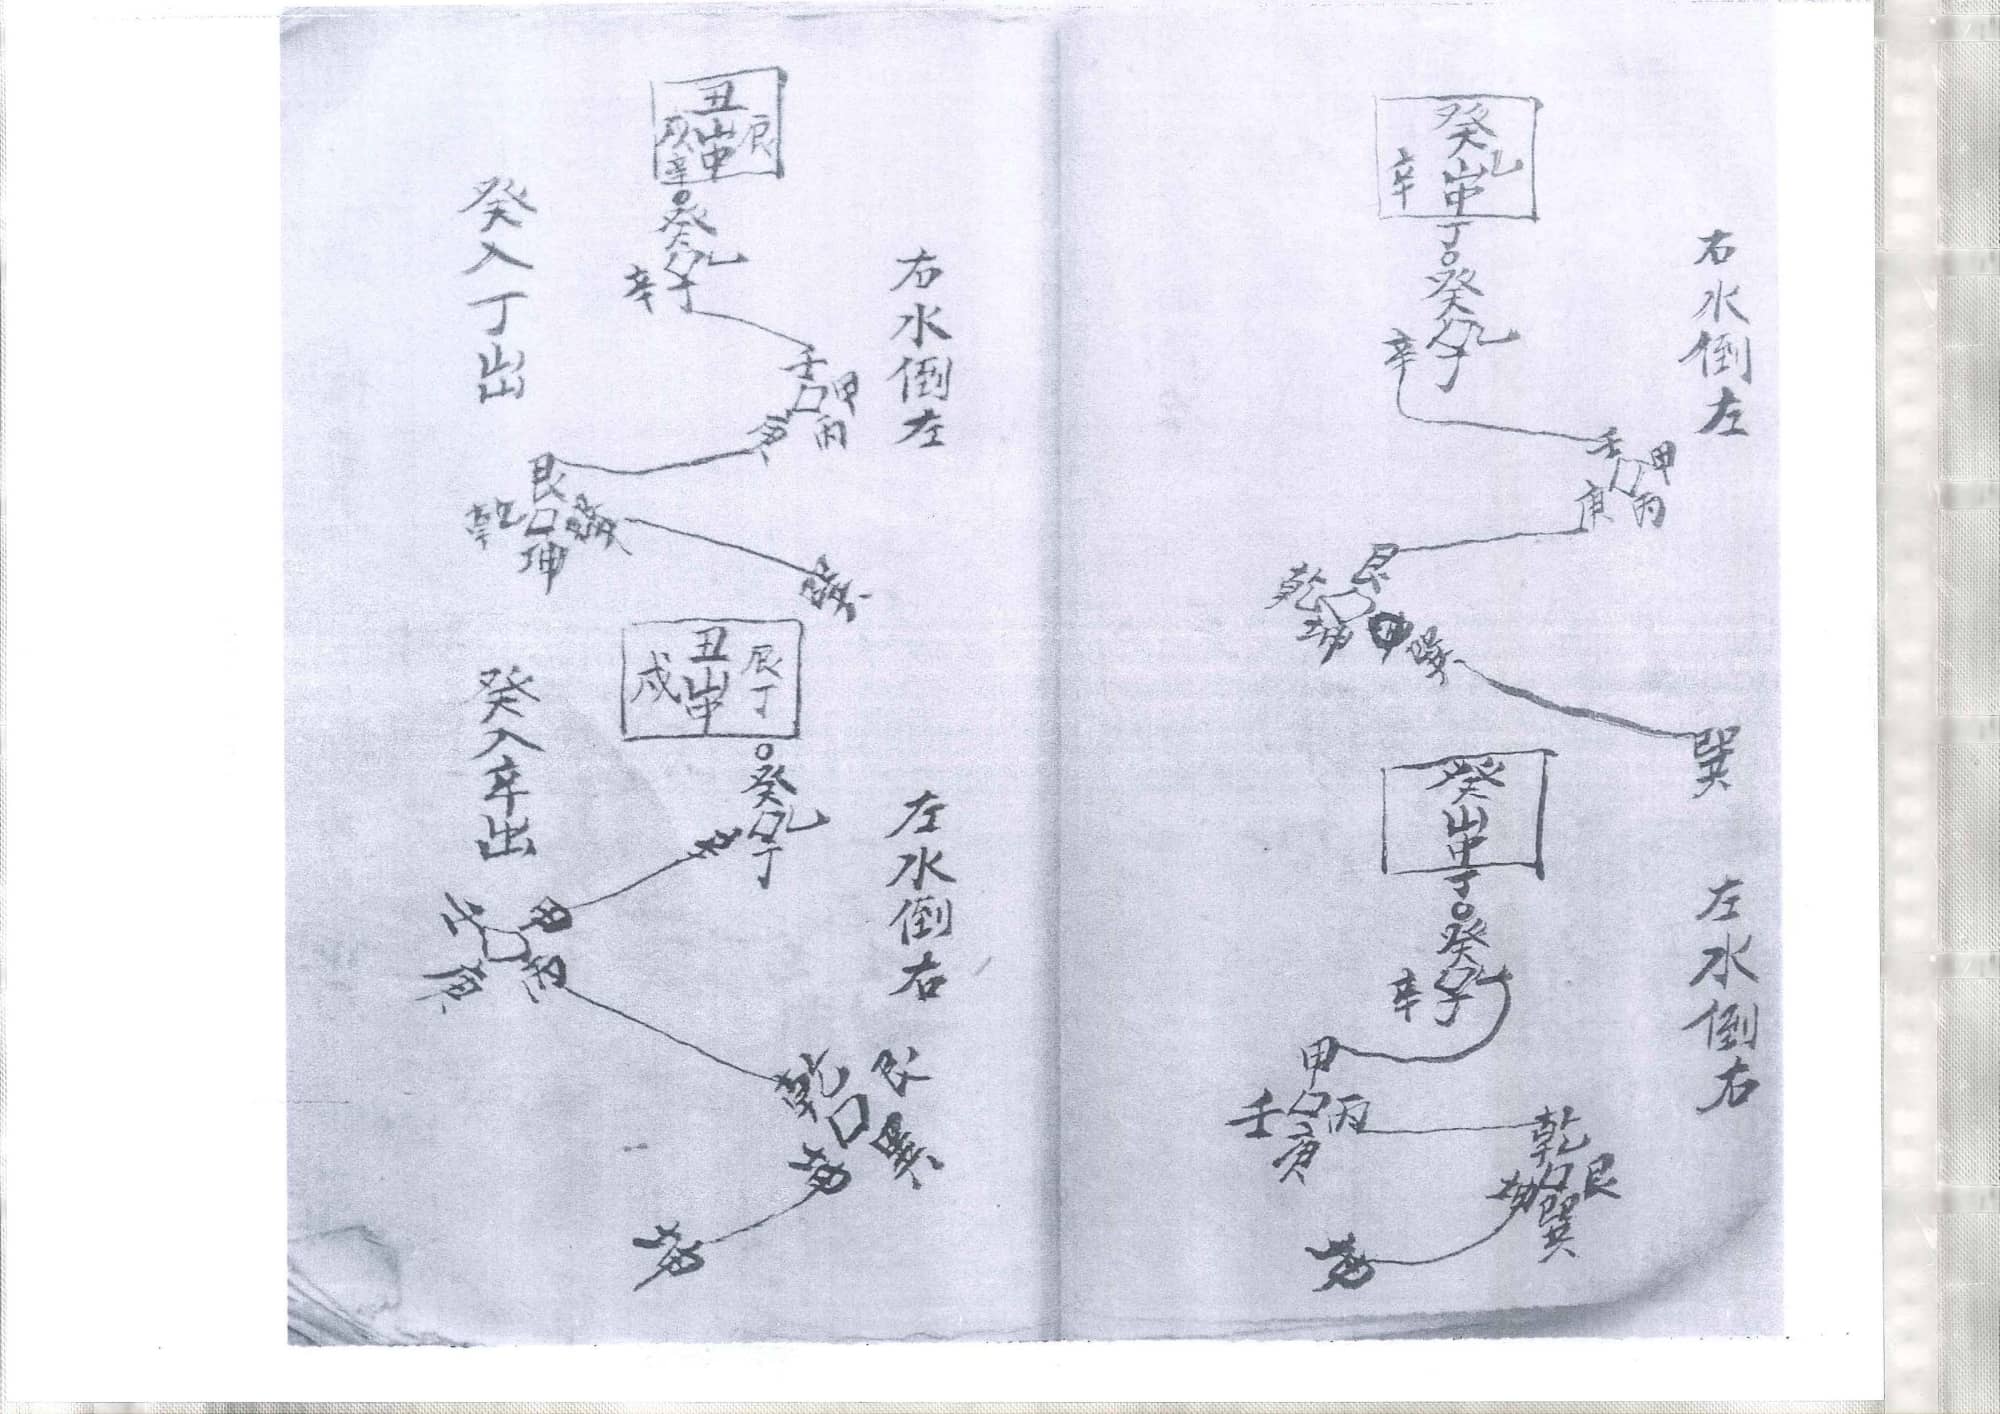 癸
山
乙
辛
中
丁
癸
乙
辛
丁
壬
甲
庚
丙
艮
乾
坤
巽
巽
右水倒左
癸
山
中
丁
癸
辛
丁
甲
壬
丙
庚
乾
坤
艮
巽
坤
左水倒右
丑
山
戌
辰
辛
中
癸
乙
辛
丁
壬
甲
丙
庚
艮
乾
巽
坤
巽
右水倒左
癸入丁出
丑
山
戌
辰
中
丁
癸
乙
丁
甲
壬
丙
庚
乾
艮
巽
坤
坤
左水倒右
癸入辛出